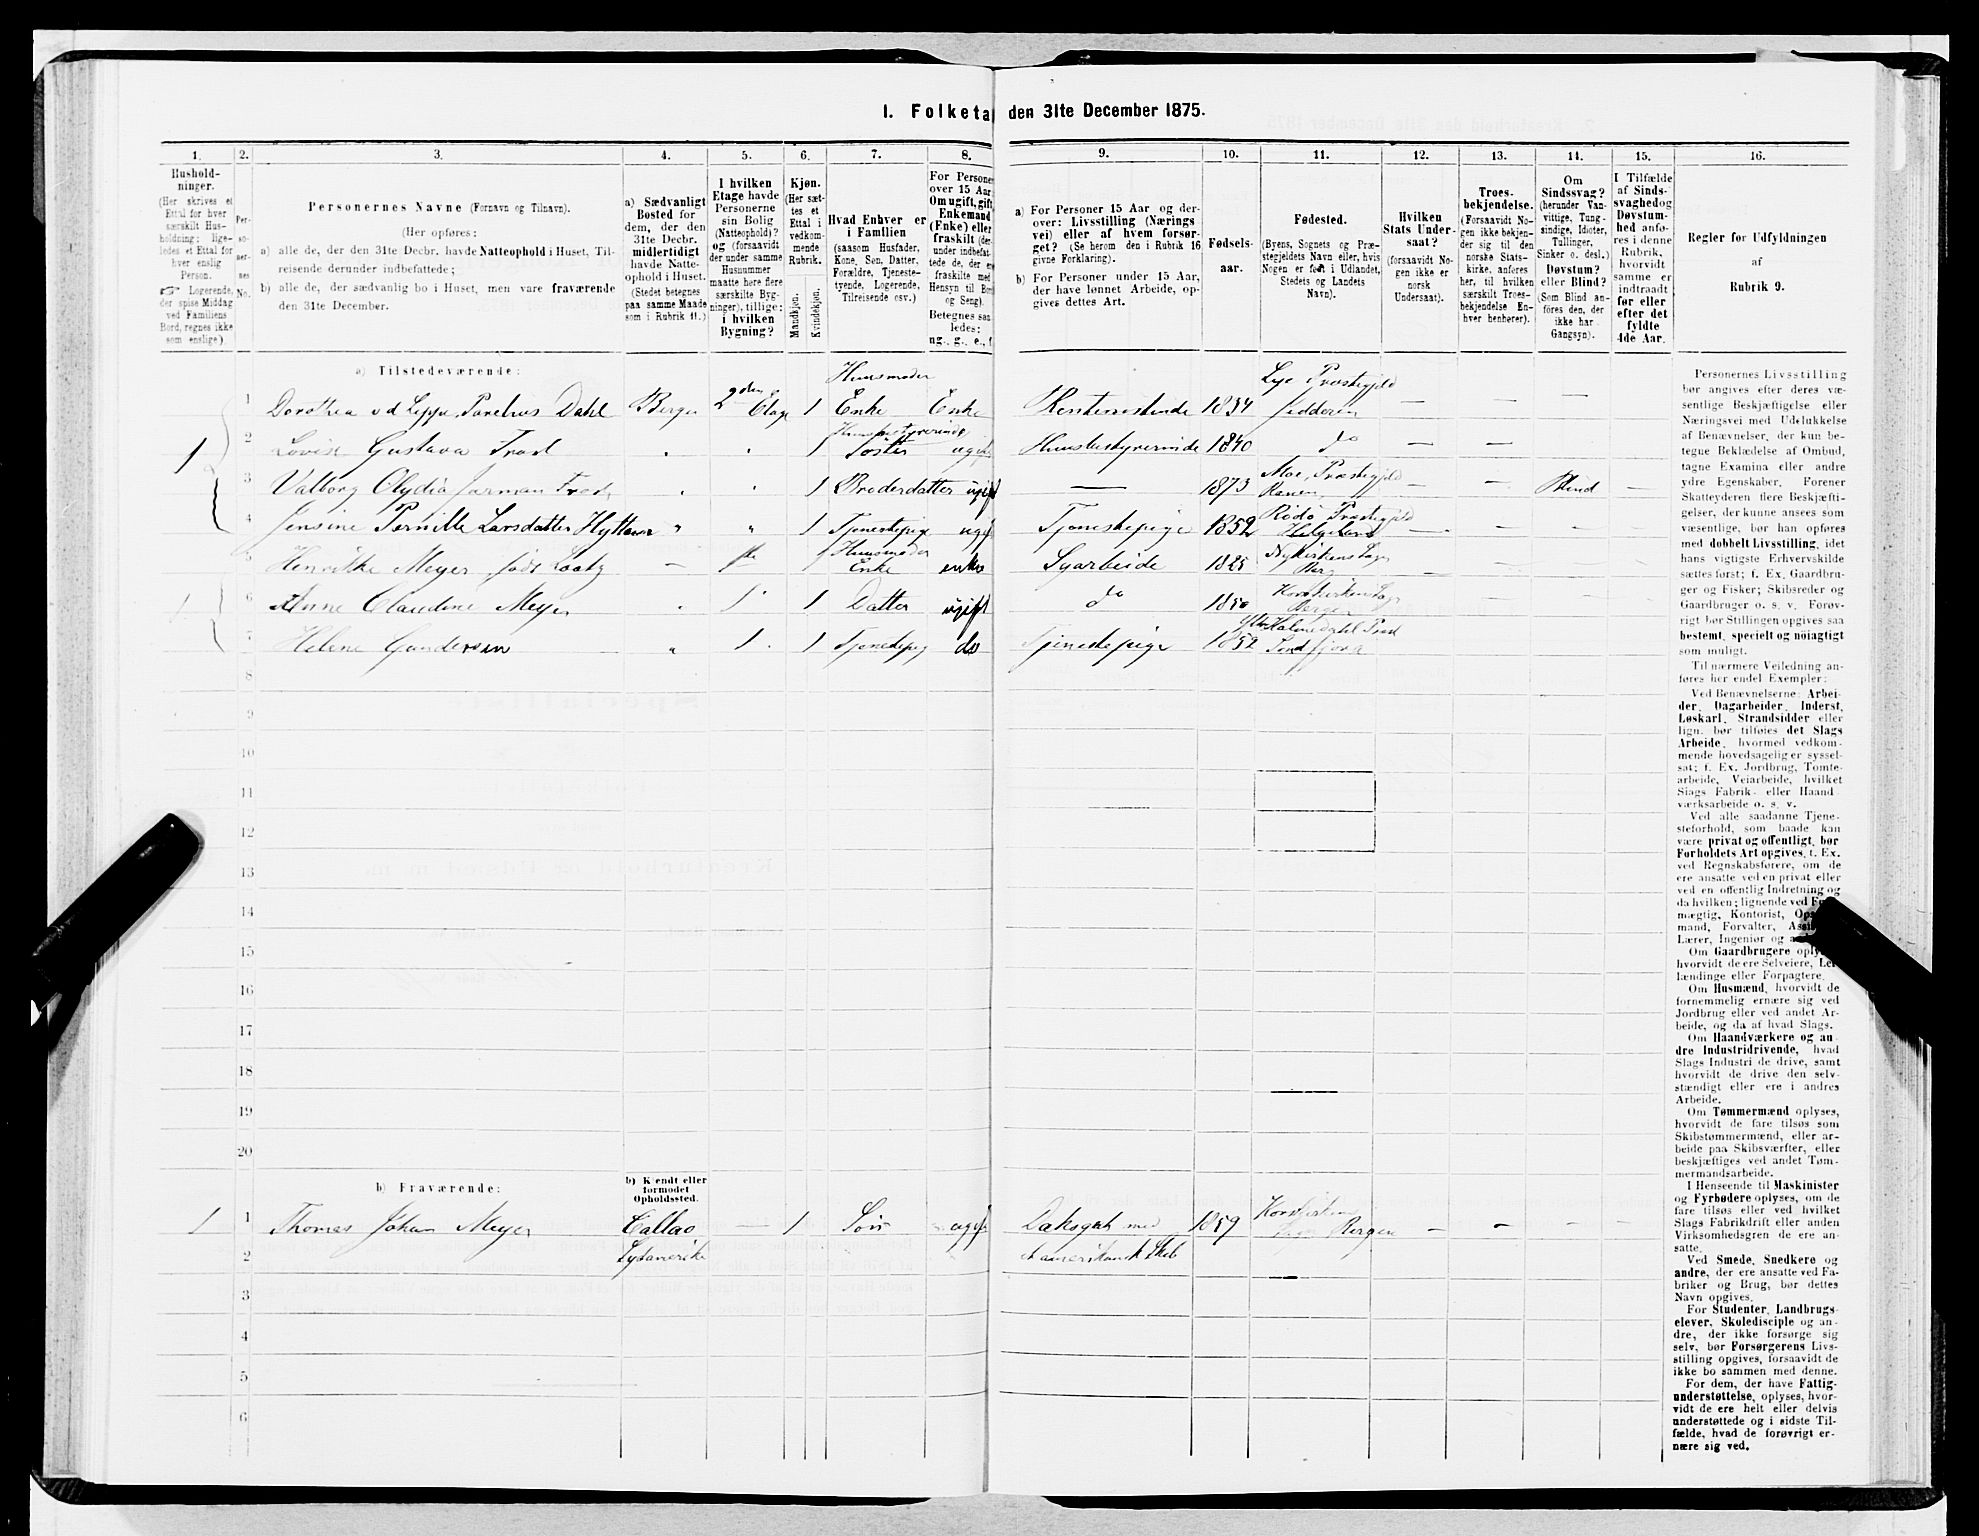 1. Folketæ den 31te December 1875.
1. 2. 3. 4. 5. 6. 7. 8. 9. 10. 11. 12. 13. 14. 15. 16.
Hushold-
ninger.
(Her skrives et
Ettal for hver
særskilt Hus-
holdning; lige-
ledes et Ettal for
hver enslig
Person.
☞ Logerende,
der spise Middag
ved Familiens
Bord, regnes ikke
som enslige).
Per-
so-
ner-
nes
No.
Personernes Navne (Fornavn og Tilnavn).
(Her opføres:
a) alle de, der den 31te Decbr. havde Natteophold i Huset, Til-
reisende derunder indbefattede;
b) alle de, der sædvanlig bo i Huset, men vare fraværende
den 31te December.
a) Sædvanligt
Bosted for
dem, der den
31te Decbr.
midlertidigt
havde Natte-
ophold i Huset.
(Stedet betegnes
paa samme Maade
som i Rubrik 11.)
I hvilken
Etage havde
Personerne
sin Bolig
(Natteophold)?
og (forsaavidt
der under samme
Husnummer
maatte høre flere
særskilte Byg-
ninger), tillige:
i hvilken
Bygning?
Kjøn.
(Her sæt-
tes et
Ettal i
vedkom-
mende
Rubrik.
Mandkjøn.
Kvindekjøn.
Hvad Enhver er
i Familien
(saasom Husfader,
Kone, Søn, Datter,
Forældre, Tjeneste-
tyende, Logerende,
Tilreisende osv.)
For Persone
over 15 Aar
Om ugift, gift,
Enkemand
(Enke) eller
fraskilt (der-
under indbefat-
tede de, der er
fraskilte med
Hensyn til Bo
og Seng).
Betegnes saa
ledes:
ug., g., e., f.
a) For Personer 15 Aar og der-
over: Livsstilling (Nærings
vei) eller af hvem forsør-
get? (Se herom den i Rubrik 16
givne Forklaring).
b) For Personer under 15 Aar,
der have lønnet Arbeide, op-
gives dettes Art.
Fødsels-
aar.
Fødested.
(Byens, Sognets og Præ-
stegjeldets Navn eller, hvis
Nogen er født i Udlandet,
Stedets og Landets
Navn).
Hvilken
Stats Under-
saat?
(forsaavidt No-
gen ikke er
norsk
Undersaat).
Troes-
bekjendelse.
(Forsaavidt No-
gen ikke bekjen-
der sig til den
norske Stats-
kirke, anføres
her, til hvilken
særskilt Troes-
bekjendelse En-
hver henhører).
Om
Sindssvag?
(herunder Van-
vittige, Tung-
sindige, Idioter,
Tullinger,
Sinker o. desl.)
Døvstum?
eller Blind?
(Som Blind an-
føres den, der
ikke har
Gangsyn).
I Tilfælde
af Sinds-
svaghedog
Døvstum-
hed anfø-
res i denne
Rubrik,
hvorvidt
samme er
indtraadt
før eller
efter det
fyldte
4de Aar.
Regler for Udfyldningen
af
Rubrik 9.
a) Tilstedeværende:
1 Dorothea v d Lippe Parelius Dahl Bergen 2den Etage 1 Huusmoder Enke Enke Rentenistinde 1834 Lye Præstegjeld Jedderen — — —
1 2 Lovise Gustava Frost " " 1 Huusbestyrerinde Søster ugift Huusbestyrerinde 1840 do — —
3 Valborg Olydia Jarman Frost " " 1 Broderdatter ugift — 1873 Moe Præstegjeld Ranen — — Blind —
4 Jensine Pernille Larsdatter " " 1 Tjenestepige ugift Tjenestepige 1852 Rødø Præstegjeld Helgeland — —
5 Henrikke Meyer født — 1 Huusmoder Enke enke Syarbeide 1825 Nykirkens Sogn — —
1 6 Anne Claudine Meyer " 1 1 Datter ugift do 1850 Korskirkens Sogn Bergen — —
7 Helene Gundersen " 1 1 Tjenestepig do Tjenestepige 1852 Præst — —
8
9
10
11
12
13
14
15
16
17
18
19
20
b) Fraværende:
b) Kjendt eller
formodet
Opholdssted.
1 1 Thomas Johan Meyer Callao — 1 Søn ugift med 1859 Korskirkens Sogn Bergen — — — —
2 Sydamerika et amerikansk Skib
3
4
5
6
Personernes Livsstilling
bør angives efter deres væ-
sentlige Beskjæftigelse eller
Næringsvei med Udelukkelse
af Benævnelser, der kun be-
tegne Beklædelse af Ombud,
tagne Examina eller andre
ydre Egenskaber. Forener
Skatteyderen flere Beskjæfti-
gelser, der kunne ansees som
væsentlige, bør han opføres
med dobbelt Livsstilling, idet
hans vigtigste Erhvervskilde
sættes først; f. Ex. Gaardbru-
ger og Fisker; Skibsreder og
Gaardbruger o. s. v. Forøv-
rigt bør Stillingen opgives saa
bestemt, specielt og nöiagtigt
som muligt.
Til nærmere Veiledning an-
føres her endel Exempler:
Ved Benævnelserne: Arbei-
der, Dagarbeider, Inderst,
Løskarl, Strandsidder eller
lign. bør tilføies det Slags
Arbeide, hvormed vedkom-
mende hovedsagelig er syssel-
sat; f. Ex. Jordbrug, Tomte-
arbeide, Veiarbeide, hvilket
Slags Fabrik- eller Haand
værksarbeide o. s. v.
Ved alle saadanne Tjene-
steforhold, som baade kan
være privat og offentligt, bør
Forholdets Art opgives, f. Ex.
ved Regnskabsførere, om de
ere ansatte ved en privat eller
ved en offentlig Indretning og
da hvilken; lignende ved
mægtig, Kontorist,
mand, Forvalter,
Lærer, Ingeniør og
Om Gaardbrugere
hvorvidt de ere Selveiere,
lændinge eller Forpagtere.
Om Husmænd, hvorvidt de
fornemmelig ernære sig ved
Jordbrug eller ved andet Ar-
beide, og da af hvad Slags.
Om Haandværkere og an-
dre Industridrivende, hvad
Slags Industri de drive, samt
hvorvidt de drive den selv-
stændigt eller ere i andres
Arbeide.
Om Tømmermænd oplyses,
hvorvidt de fare tilsøs som
Skibstømmermænd, eller ar-
beide paa Skibsværfter, eller
beskjæftiges ved andet Tøm-
mermandsarbeide.
I Henseende til Maskinister
og Fyrbødere oplyses, om de
fare tilsøs eller ved hvilket
Slags Fabrikdrift eller anden
Virksomhedsgren de ere an-
satte.
Ved Smede, Snedkere og
andre, der ere ansatte ved Fa-
briker og Brug, bør dettes
Navn opgives.
For Studenter, Landbrugs-
elever, Skoledisciple og an-
dre, der ikke forsørge sig
selv, bør Forsørgerens Livs-
stilling opgives, forsaavidt de
ikke bo sammen med denne.
For dem, der have Fattig-
understøttelse, oplyses, hvor-
vidt de ere helt eller delvis
understøttede og i sidste Til-
fælde, hvad de forøvrigt er-
nære sig ved.